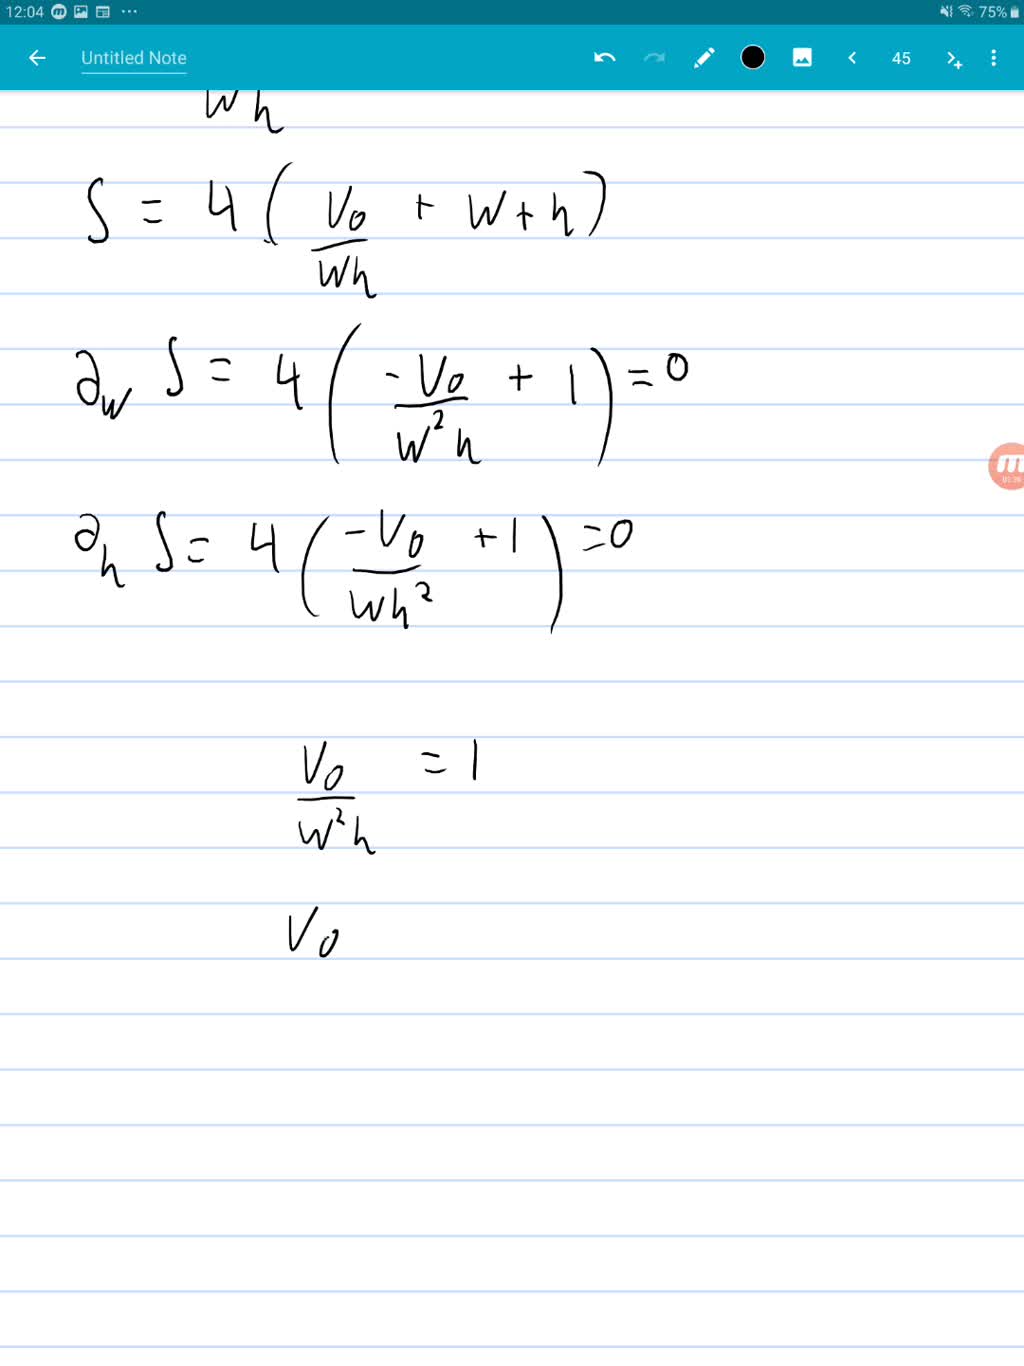 12:04 75%
Untitled Note 45
wh
S = 4 ( V₀/wh + w + h )
∂w S = 4 ( -V₀/w²h + 1 ) = 0
∂h S = 4 ( -V₀/wh² + 1 ) = 0
V₀/w²h = 1
V₀